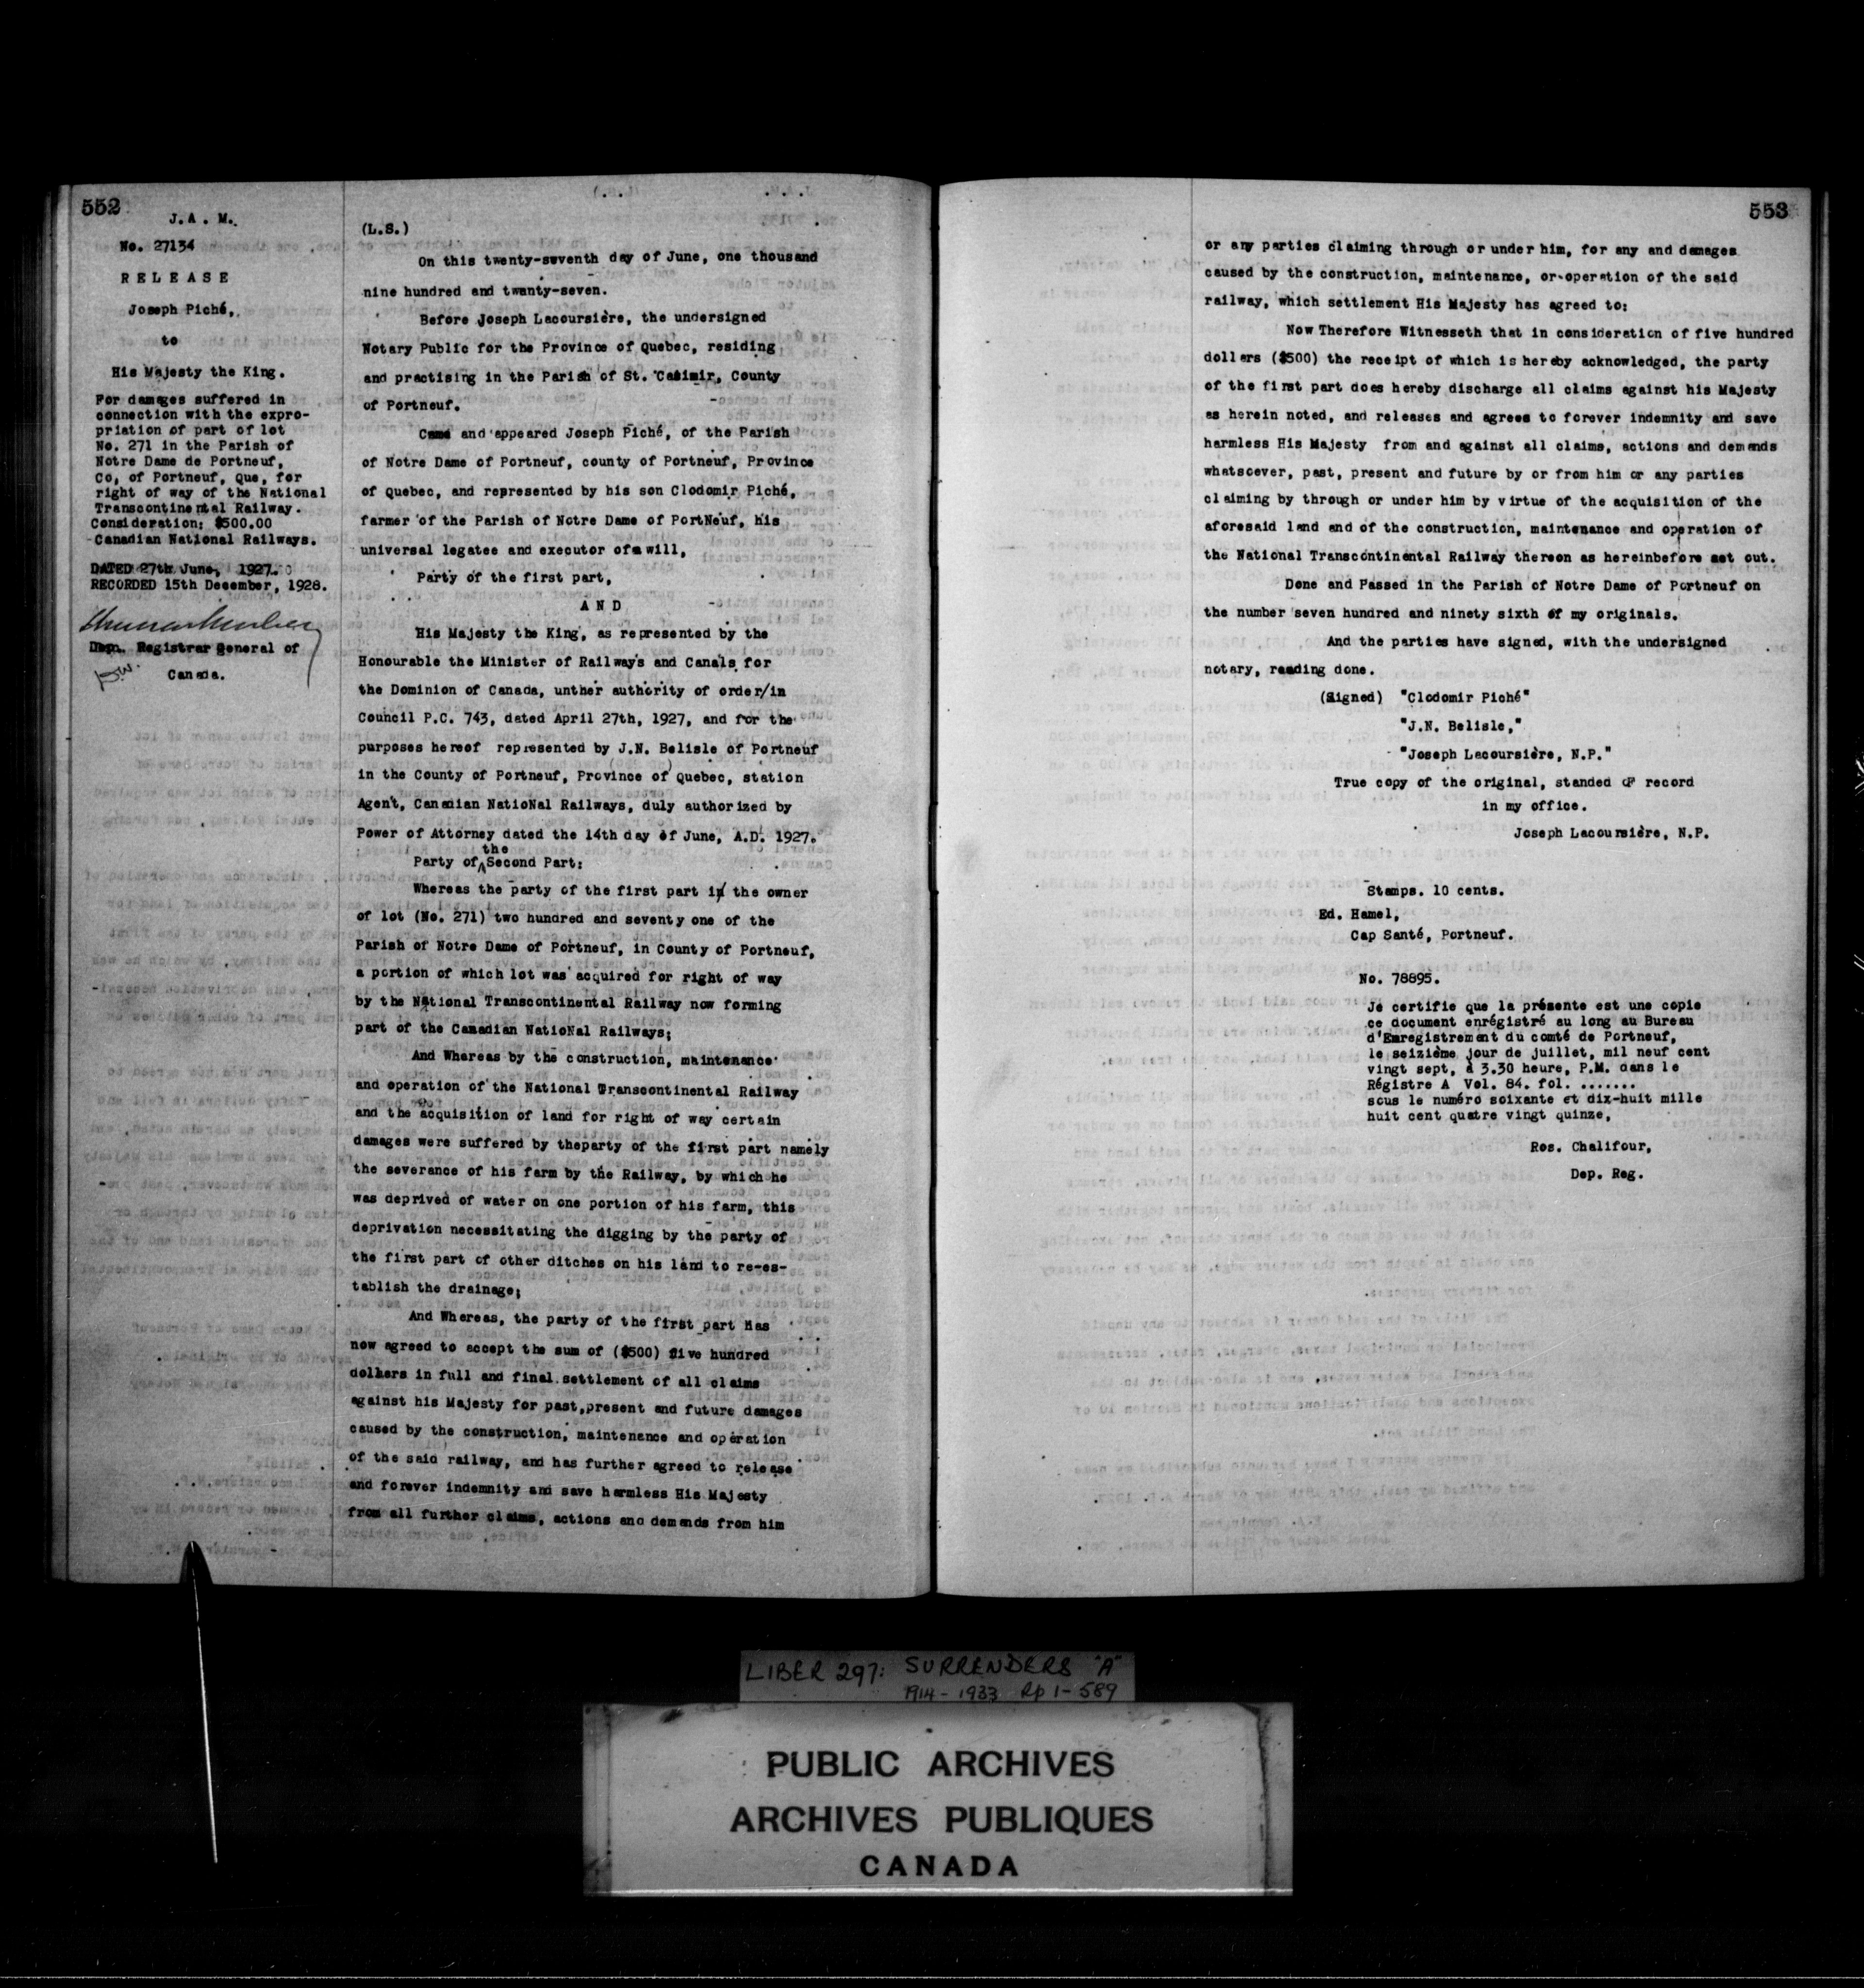 552
J.A. M.
No. 27134
RELEASE
Joseph Piché,
to
His Majesty the King.
For damages suffered in
connection with the expro-
priation of part of lot
No. 271 in the Parish of
Notre Dame de Portneuf,
Co, of Portneuf, Que, for
right of way of the National
Transcontinental Railway.
Consideration: $500.00
Canadian National Railways.
DATED 27th June, 1927.
RECORDED 15th December, 1928.
Registrar General of
Canada.
(L.S.)
On this twenty-seventh day of June, one thousand
nine hundred and twenty-seven.
Before Joseph Lacoursière, the undersigned
Notary Public for the Province of Quebec, residing
and practising in the Parish of St. Casimir, County
of Portneuf.
Came and appeared Joseph Piché, of the Parish
of Notre Dame of Portneuf, county of Portneuf, Province
of Quebec, and represented by his son Clodomir Piché,
farmer of the Parish of Notre Dame of PortNeuf, his
universal legatee and executor of a will,
Party of the first part,
AND
His Majesty the King, as represented by the
Honourable the Minister of Railways and Canals for
the Dominion of Canada, unther authority of order/in
Council P.C. 743, dated April 27th, 1927, and for the
purposes hereof represented by J.N. Belisle of Portneuf
in the County of Portneuf, Province of Quebec, station
Agent, Canadian NatioNal Railways, duly authorized by
Power of Attorney dated the 14th day of June, A.D. 1927.
Party of the Second Part:
Whereas the party of the first part is the owner
of lot (No. 271) two hundred and seventy one of the
Parish of Notre Dame of Portneuf, in County of Portneuf,
a portion of which lot was acquired for right of way
by the National Transcontinental Railway now forming
part of the Canadian NatioNal Railways;
And Whereas by the construction, maintenance
and operation of the National Transcontinental Railway
and the acquisition of land for right of way certain
damages were suffered by theparty of the first part namely
the severance of his farm by the Railway, by which he
was deprived of water on one portion of his farm, this
deprivation necessitating the digging by the party of
the first part of other ditches on his land to re-es-
tablish the drainage;
And Whereas, the party of the first part has
now agreed to accept the sum of ($500) five hundred
dollars in full and final settlement of all claims
against his Majesty for past,present and future damages
caused by the construction, maintenance and operation
of the said railway, and has further agreed to release
and forever indemnity and save harmless His Majesty
from all further claims, actions and demands from him
553
or any parties claiming through or under him, for any and damages
caused by the construction, maintenance, or operation of the said
railway, which settlement His Majesty has agreed to:
Now Therefore Witnesseth that in consideration of five hundred
dollars ($500) the receipt of which is hereby acknowledged, the party
of the first part does hereby discharge all claims against his Majesty
as herein noted, and releases and agrees to forever indemnity and save
harmless His Majesty from and against all claims, actions and demands
whatsoever, past, present and future by or from him or any parties
claiming by through or under him by virtue of the acquisition of the
aforesaid land and of the construction, maintenance and operation of
the National Transcontinental Railway thereon as hereinbefore set out.
Done and Passed in the Parish of Notre Dame of Portneuf on
the number seven hundred and ninety sixth of my originals.
And the parties have signed, with the undersigned
notary, reading done.
(Signed) "Clodomir Piché"
"J.N. Belisle,"
"Joseph Lacoursière, N.P."
True copy of the original, standed of record
in my office.
Joseph Lacoursière, N.P.
Stamps. 10 cents.
Ed. Hamel,
Cap Santé, Portneuf.
No. 78895.
Je certifie que la présente est une copie
ce document enrégistré au long au Bureau
d'Enregistrement du comté de Portneuf,
le seizième jour de juillet, mil neuf cent
vingt sept, à 3.30 heure, P.M. dans le
Régistre A Vol. 84. fol. .......
sous le numéro soixante et dix-huit mille
huit cent quatre vingt quinze,
Ros. Chalifour,
Dep. Reg.
LIBER 297: SURRENDERS "A"
1914-1933 Rp 1-589
PUBLIC ARCHIVES
ARCHIVES PUBLIQUES
CANADA